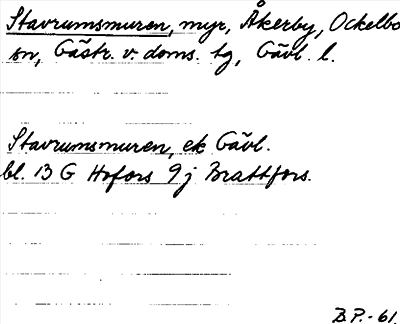 Stavrumsmuren, myr, Åkerby, Ockelbo
sn, Gästr. v. doms. tg, Gävl. l.
Stavrumsmuren, ek Gävl.
bl. 13 G Hofors 9 j Brattfors.
B.P.-61.